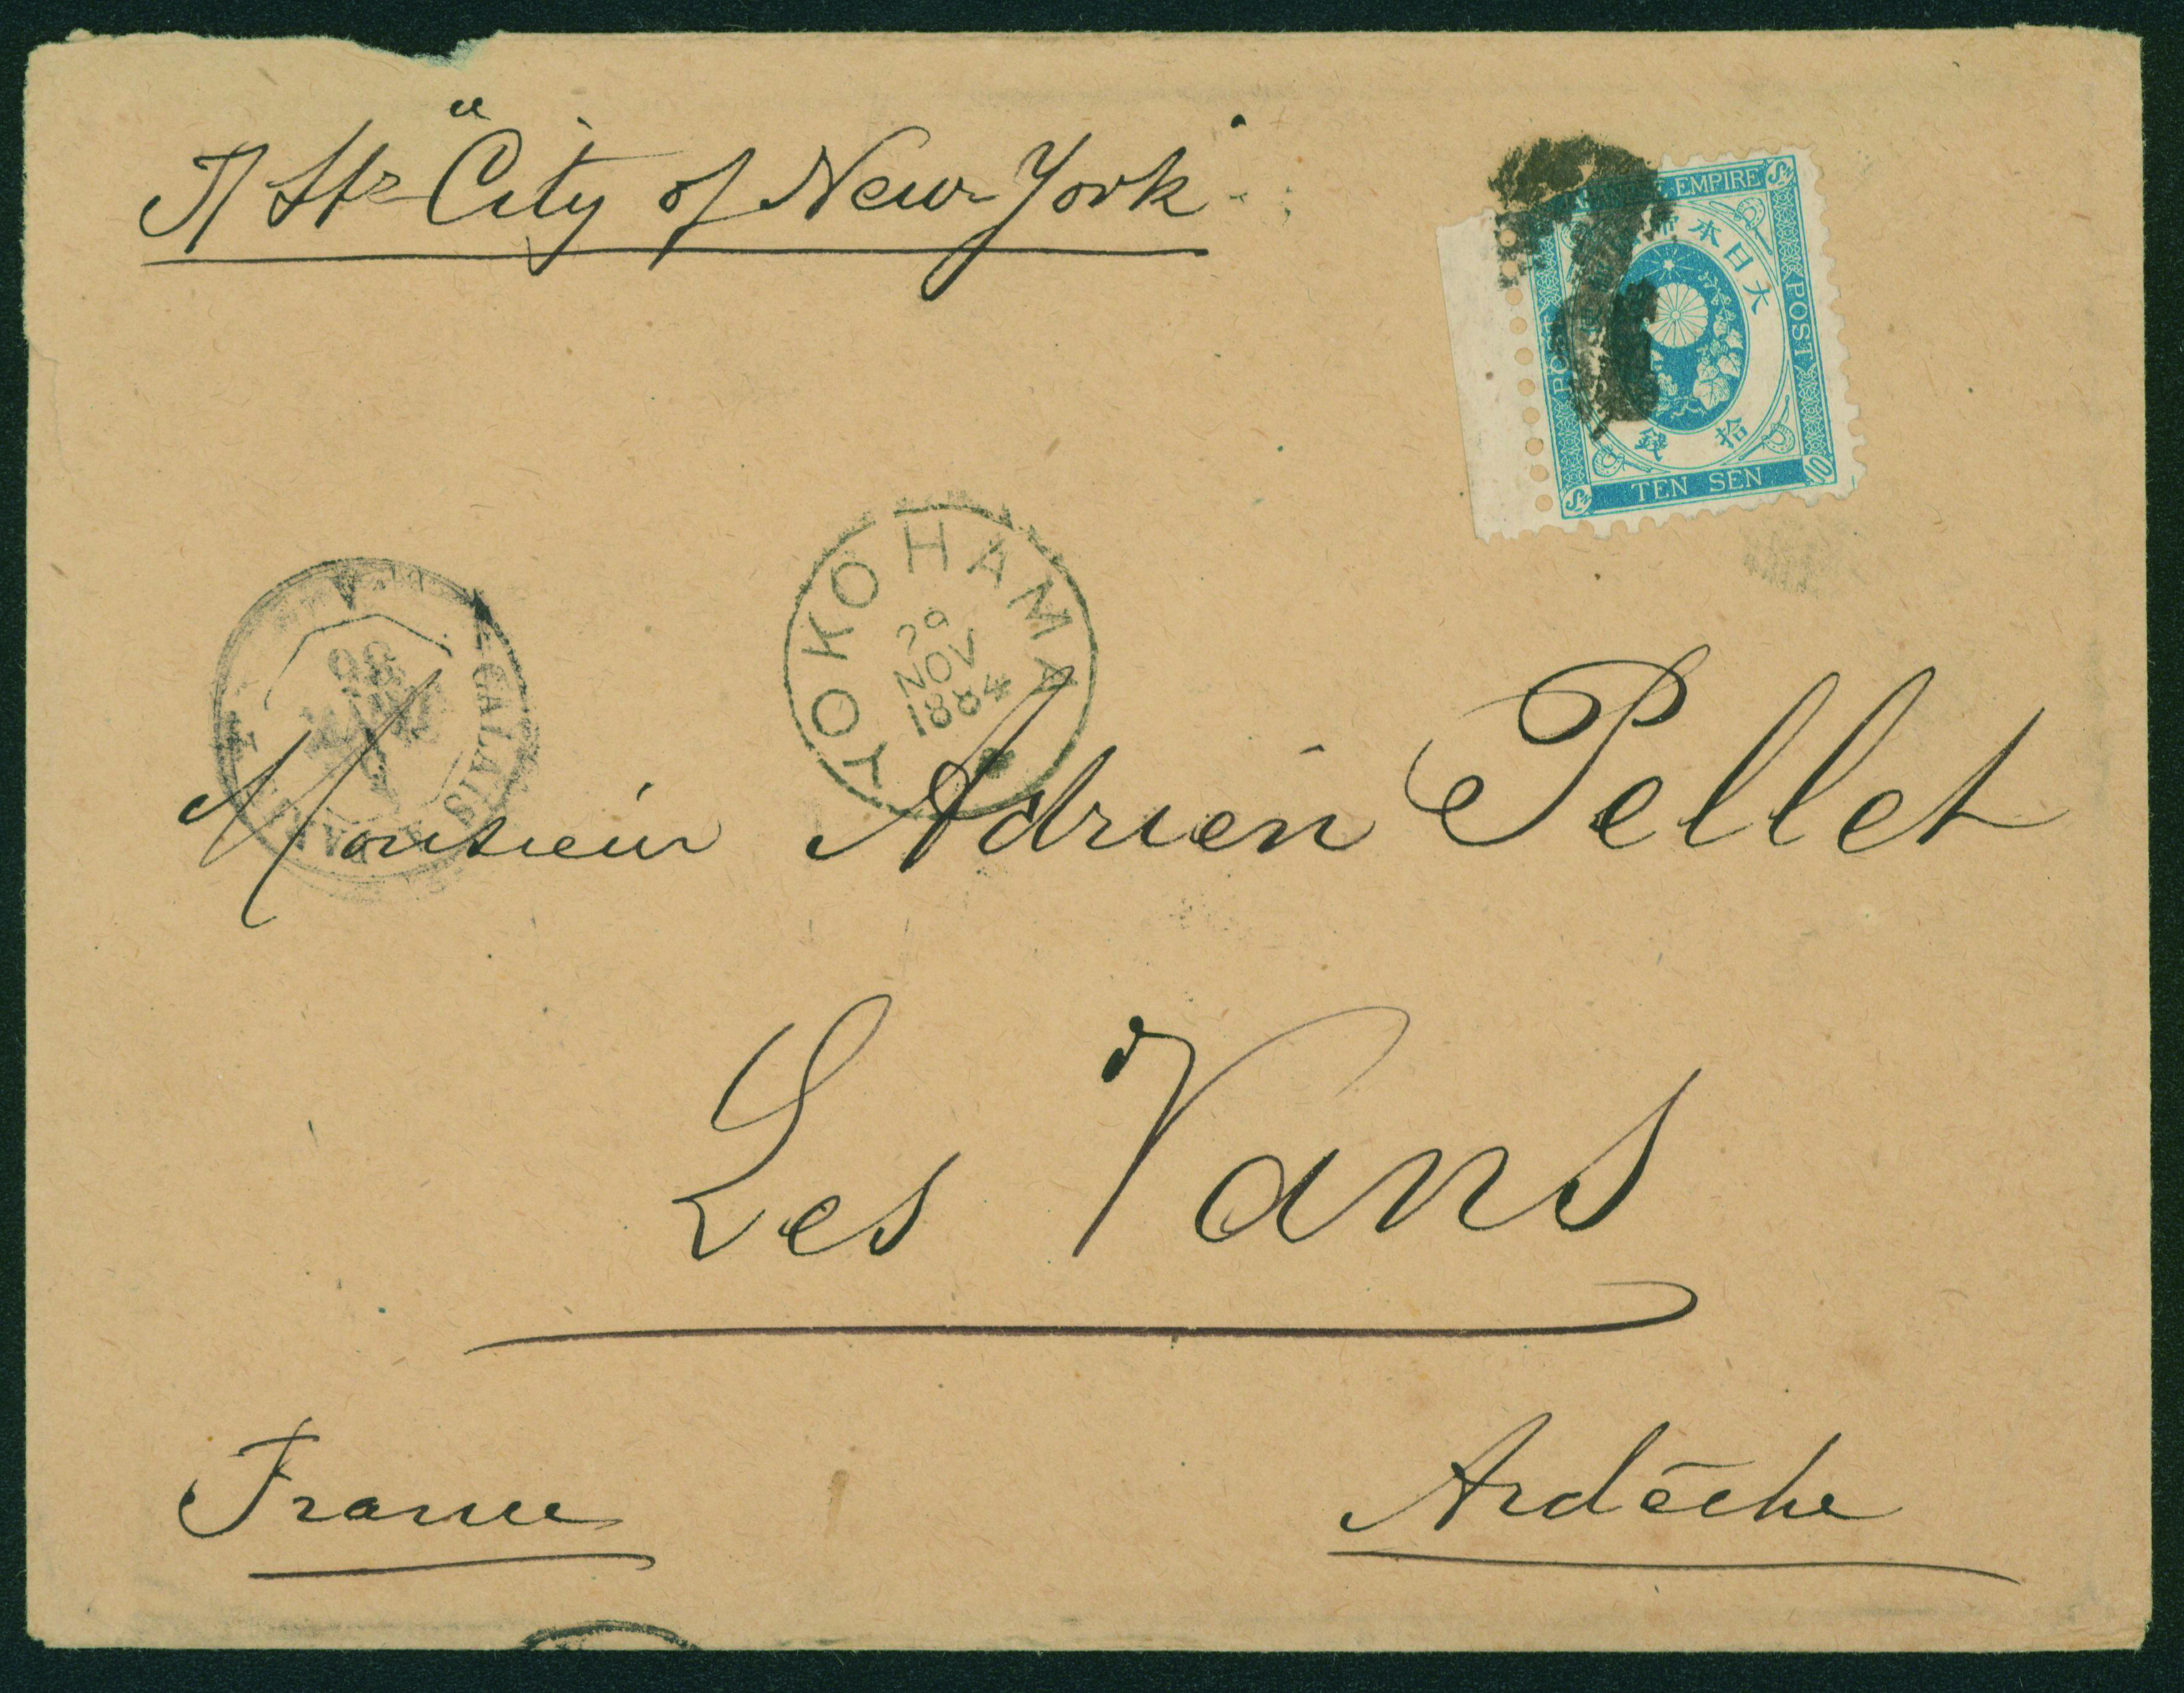 "City of New York"
EMPIRE
大日本帝
POST
POST
拾
銭
Sn
10
TEN SEN
YOKOHAMA
29
NOV
1884
CALAIS
Monsieur Adrien Pellet
Les Vans
France
Ardèche